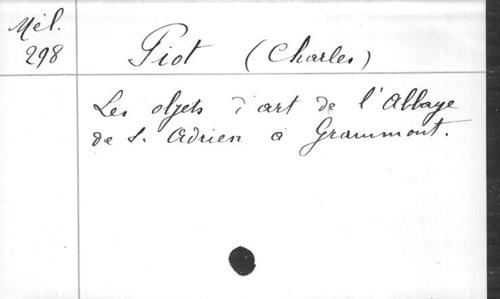 Mél.
298
Piot (Charles)
Les objets d'art de l'Abbaye
de S. Adrien à Grammont.